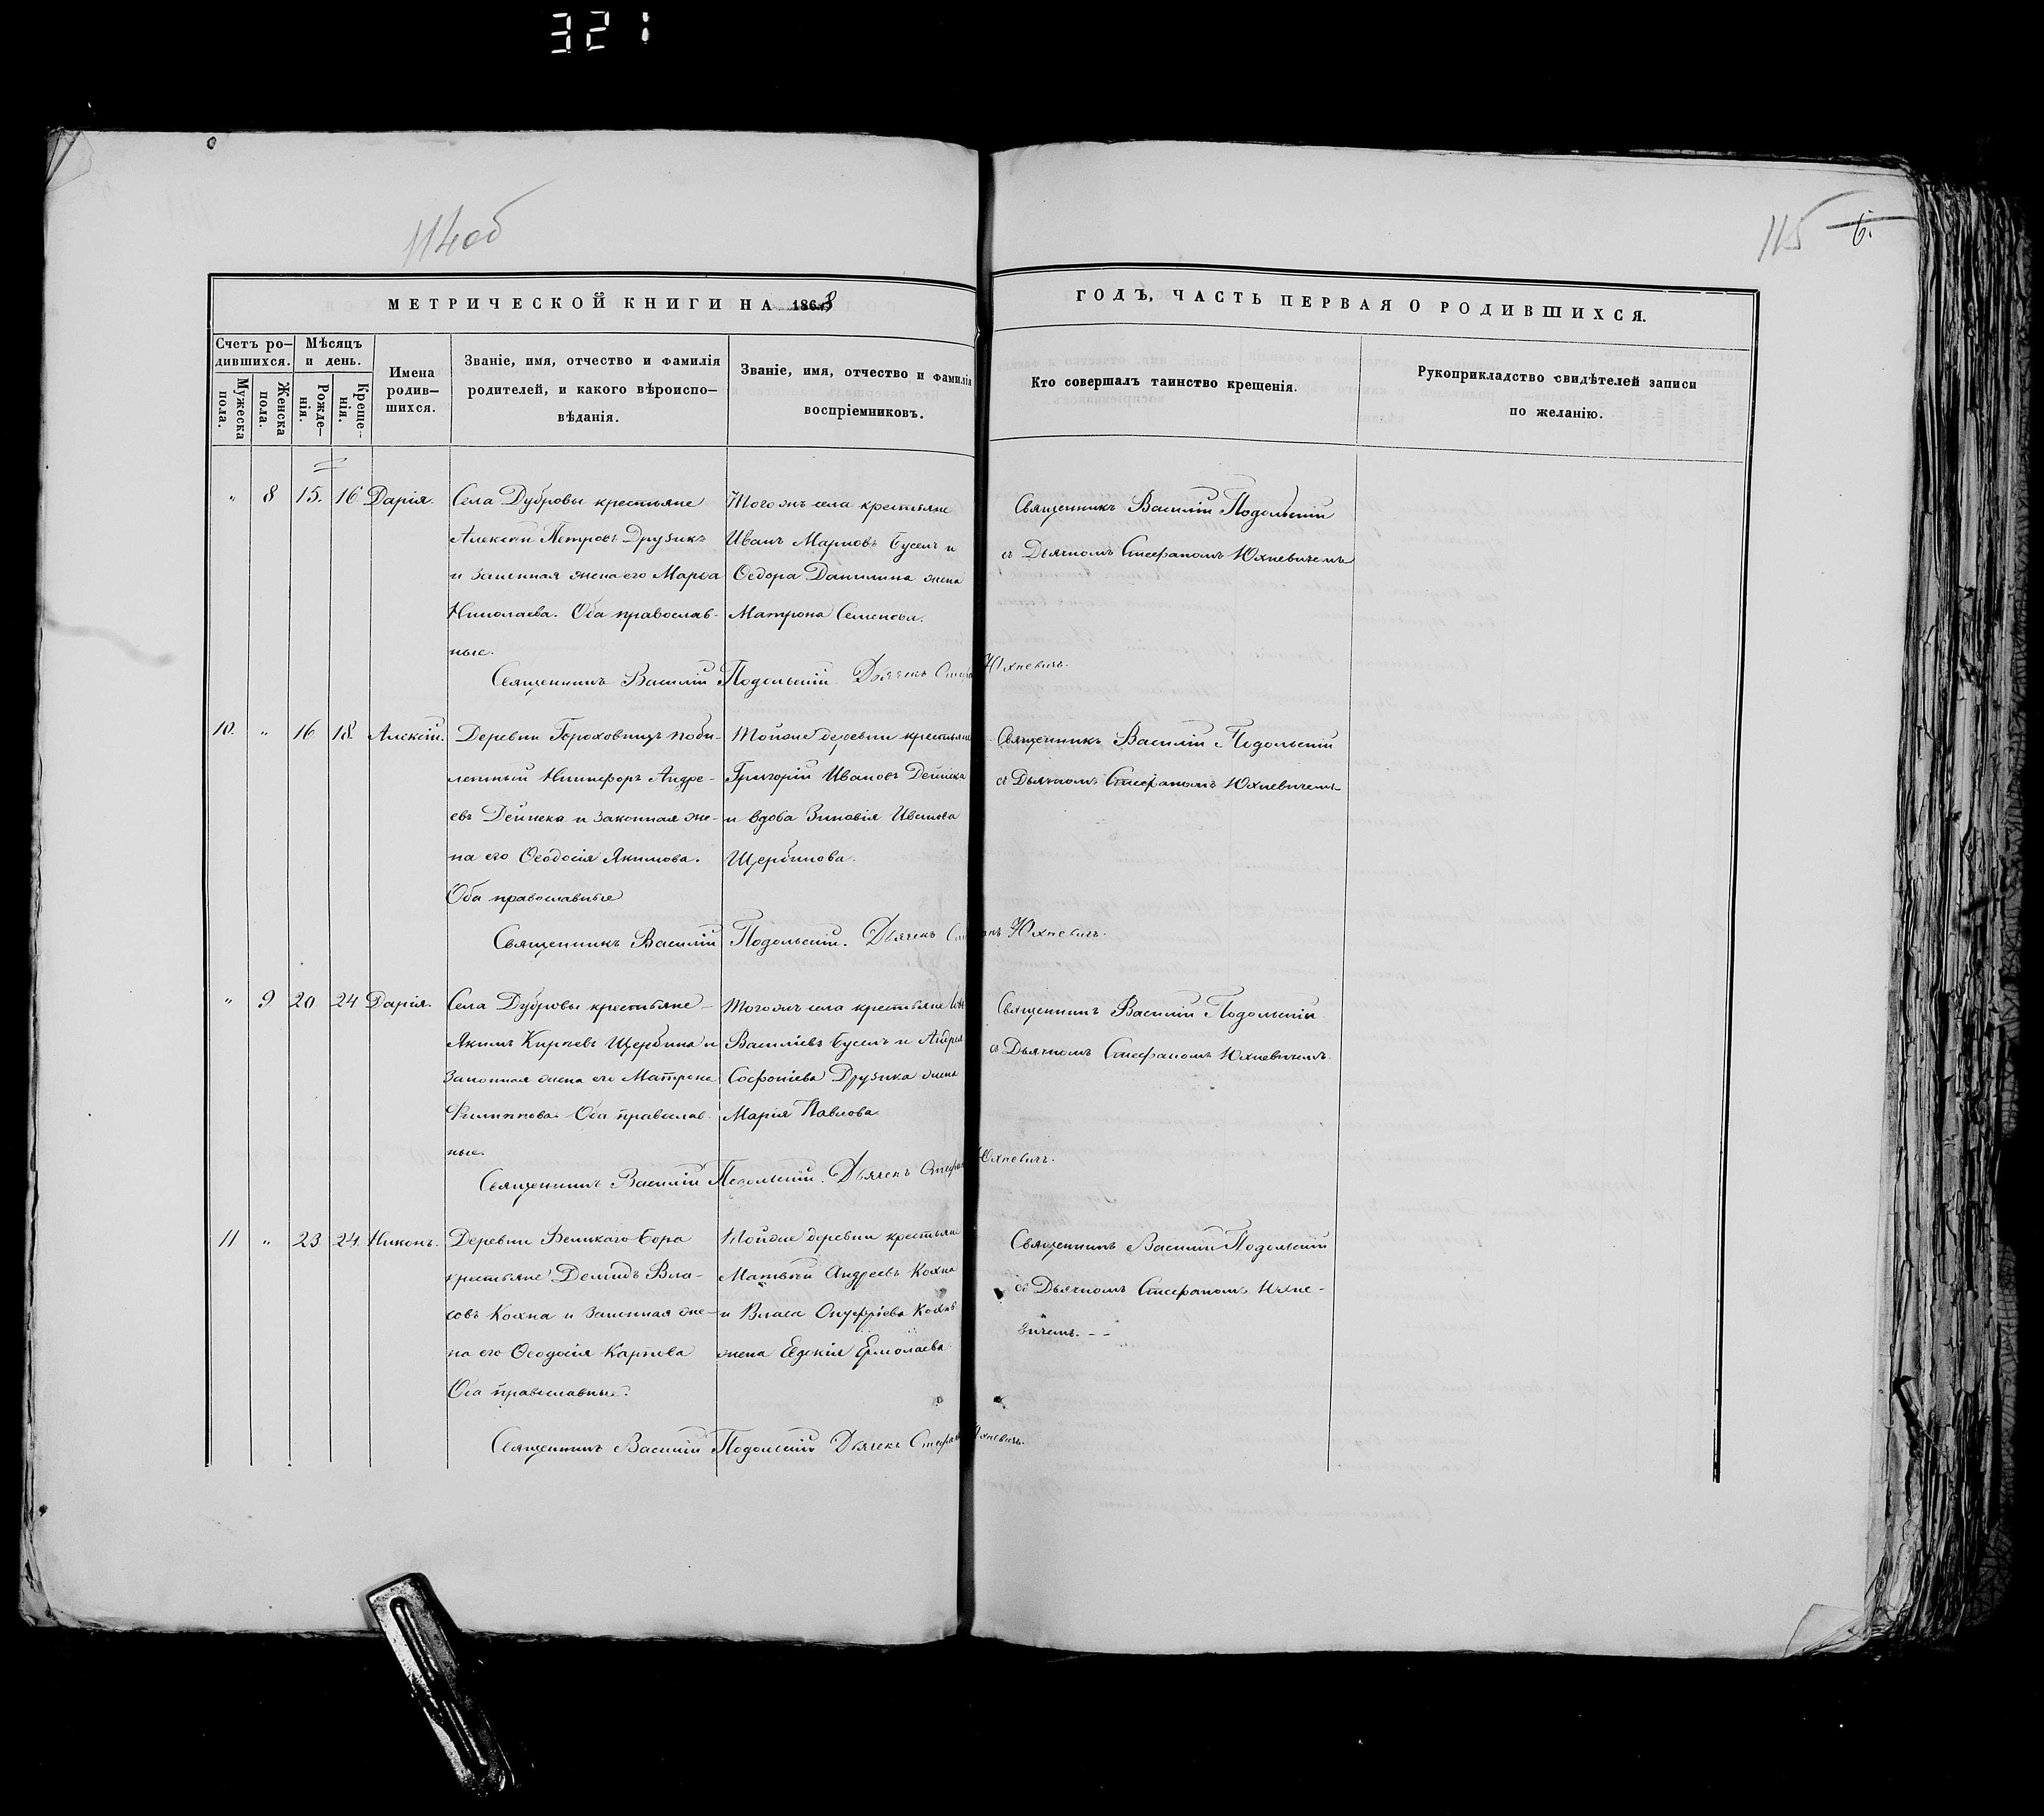 321
114 об
115 6.
МЕТРИЧЕСКОЙ КНИГИ НА 1868
ГОДЪ, ЧАСТЬ ПЕРВАЯ О РОДИВШИХСЯ.
Счетъ ро-
дившихся.
Мужеска
пола.
Женска
пола.
Мѣсяцъ
и день.
Рожде-
нія.
Креще-
нія.
Имена
родив-
шихся.
Званіе, имя, отчество и фамилія
родителей, и какого вѣроиспо-
вѣданія.
Званіе, имя, отчество и фамилія
воспріемниковъ.
Кто совершалъ таинство крещенія.
Рукоприкладство свидѣтелей записи
по желанію.
" 8 15. 16 Дарія.
Села Дубровы крестьяне
Алексѣй Петровъ Друзикъ
и законная жена его Марѳа
Николаева. Оба православ-
ные.
Тогожъ села крестьяне
Иванъ Марковъ Буселъ и
Ѳедора Данилина жена
Матрона Семенова.
Священникъ Василій Подольскій
съ Дьячкомъ Стефаномъ Юхневичемъ
Священникъ Василій Подольскій. Дьячекъ Стефанъ Юхневичъ.
10. " 16 18. Алексѣй.
Деревни Гороховищъ
Никифоръ Андре-
евъ Дейнека и законная же-
на его Ѳеодосія Якимова.
Оба православные
Тойже деревни крестьяне
Григорій Ивановъ Дейнека
и вдова Зиновія Иванова
Щербинова.
Священникъ Василій Подольскій
съ Дьячкомъ Стефаномъ Юхневичемъ
Священникъ Василій Подольскій. Дьячекъ Стефанъ Юхневичъ.
" 9 20 24 Дарія.
Села Дубровы крестьяне
Якимъ Карповъ Щербина и
законная жена его Матрона
Филиппова. Оба православ-
ные.
Тогожъ села крестьяне
Василіевъ Буселъ и Андрея
Софоніева Друзика жена
Марія Павлова
Священникъ Василій Подольскій
съ Дьячкомъ Стефаномъ Юхневичемъ.
Священникъ Василій Подольскій. Дьячекъ Стефанъ Юхневичъ.
11 " 23 24. Никонъ.
Деревни Великаго Бора
крестьяне Демидъ Вла-
совъ Кохна и законная же-
на его Ѳеодосія Карпова
Оба православные.
Тойже деревни крестьяне
Матвѣй Андреевъ Кохна
и Власа Онуфріева Кохна
жена Евдокія Ермолаева
Священникъ Василій Подольскій
съ Дьячкомъ Стефаномъ Юхне-
вичемъ. --
Священникъ Василій Подольскій Дьячекъ Стефанъ Юхневичъ.